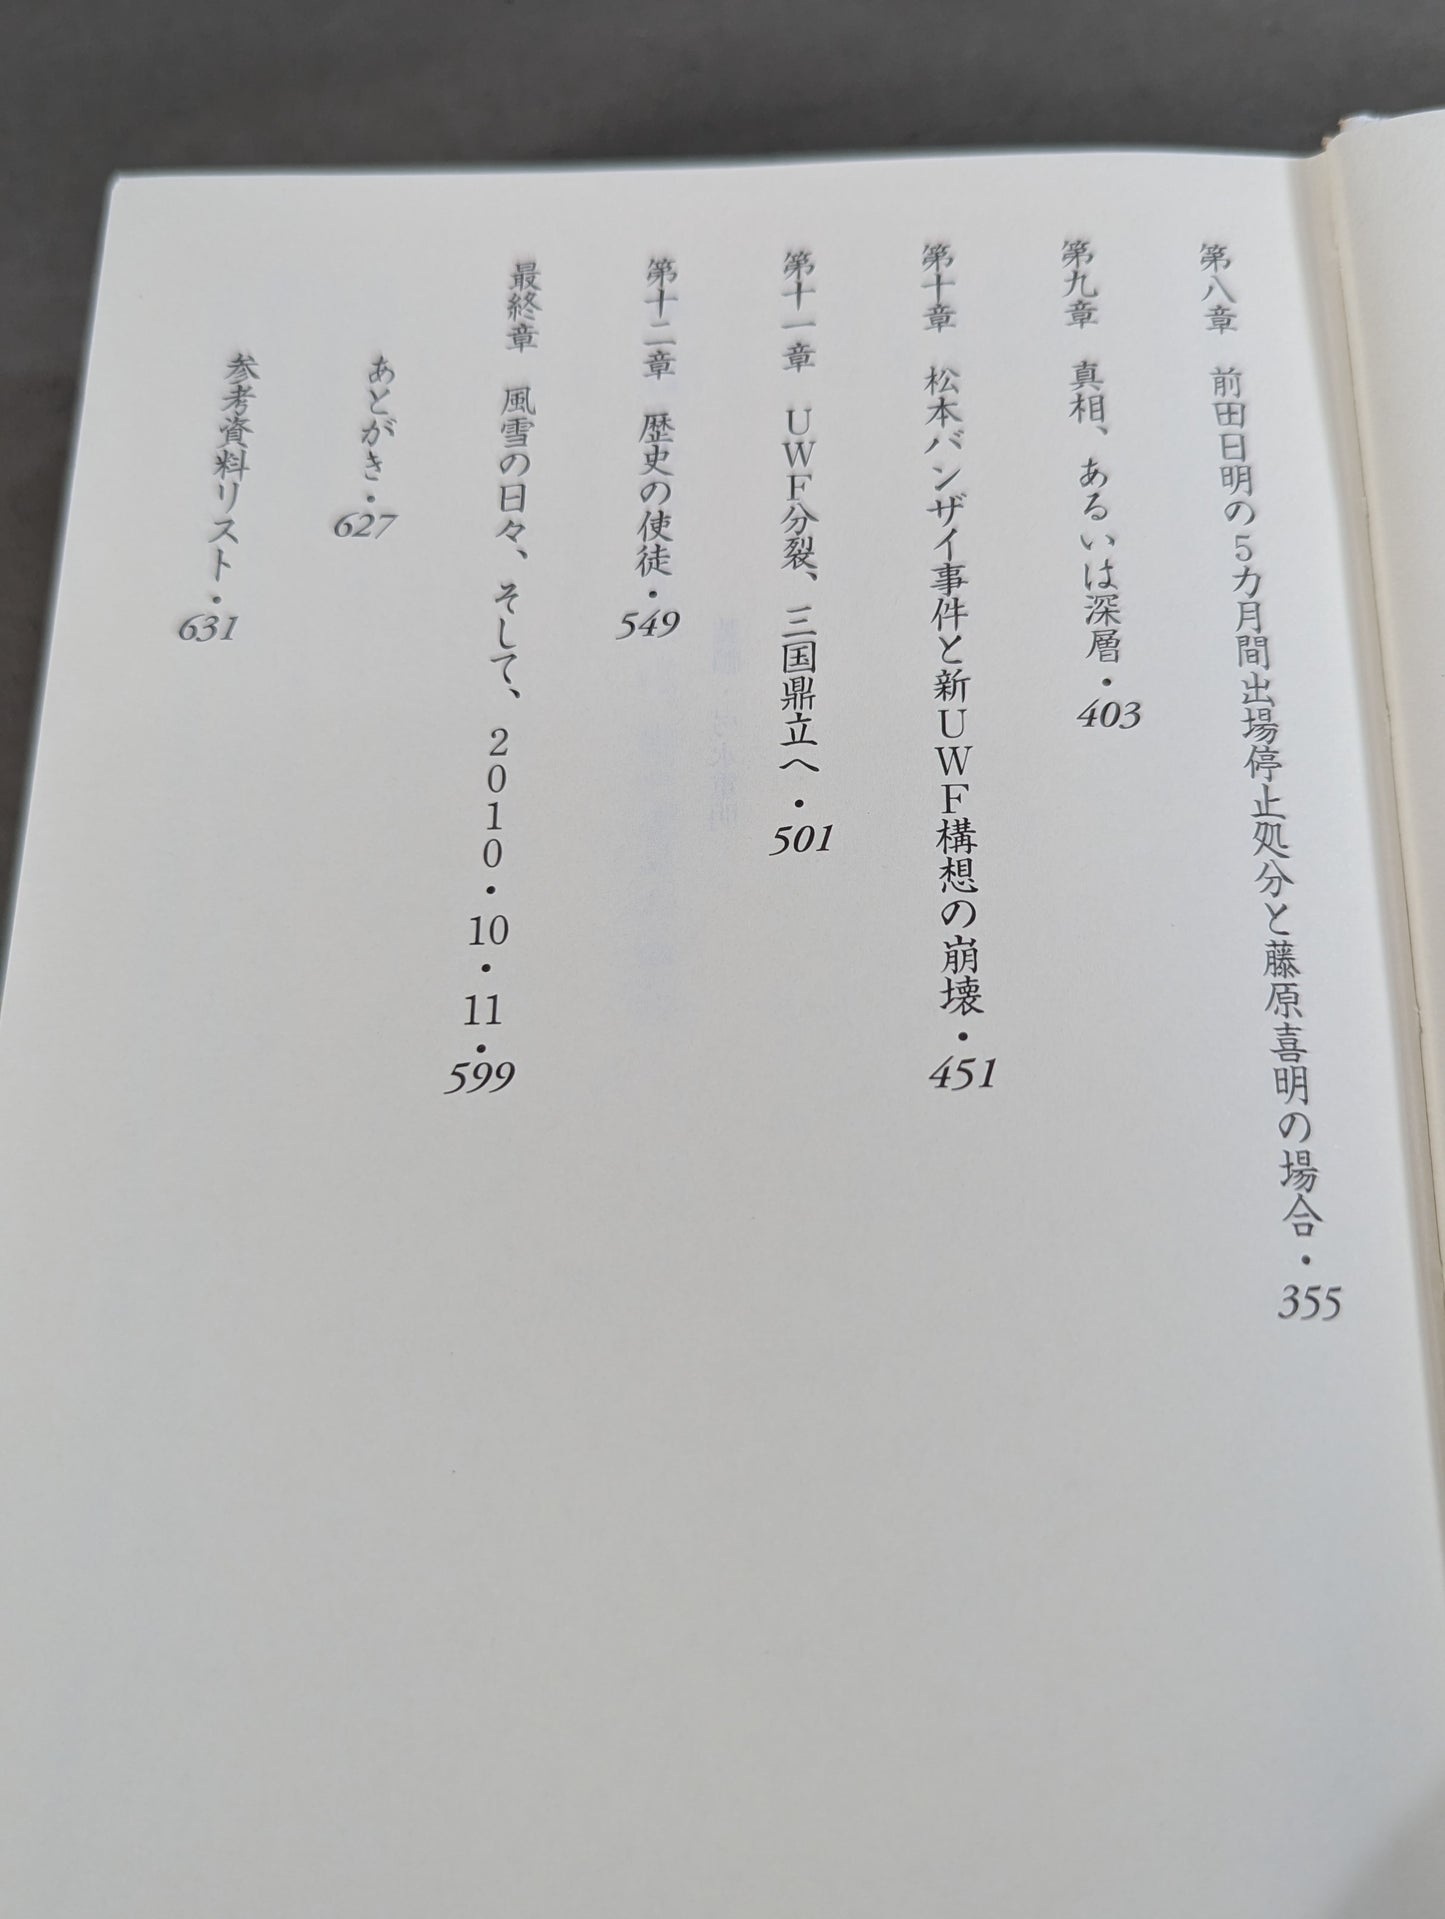 第八章　前田日明の5カ月間出場停止処分と藤原喜明の場合・355
第九章　真相、あるいは深層・403
第十章　松本バンザイ事件と新UWF構想の崩壊・451
第十一章　UWF分裂、三国鼎立へ・501
第十二章　歴史の使徒・549
最終章　風雪の日々、そして、2010・10・11・599
あとがき・627
参考資料リスト・631